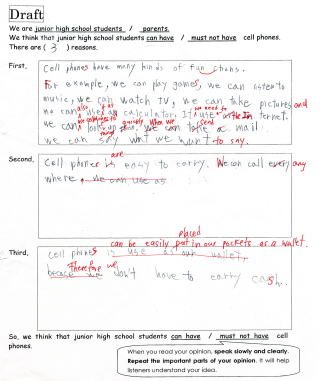 Draft
We are junior high school students / parents.
We think that junior high school students can have / must not have cell phones.
There are ( 3 ) reasons.
First,
Cell phones have many kinds of fun ctions.
For example, we can play games, we can listen to
music, we can watch TV, we can take pictures and
also
we can use as calculator.
we can
mail
we can say what we want to say.
Second,
are
Cell phones is easy to carry. We can call every any
where, we can use as
placed
can be easily put in our pockets as a wallet.
Third,
cell phones is use as our wallet,
Therefore we
becaus we don't have to carry cash.
So, we think that junior high school students can have / must not have cell
phones.
When you read your opinion, speak slowly and clearly.
Repeat the important parts of your opinion. It will help
listeners understand your idea.